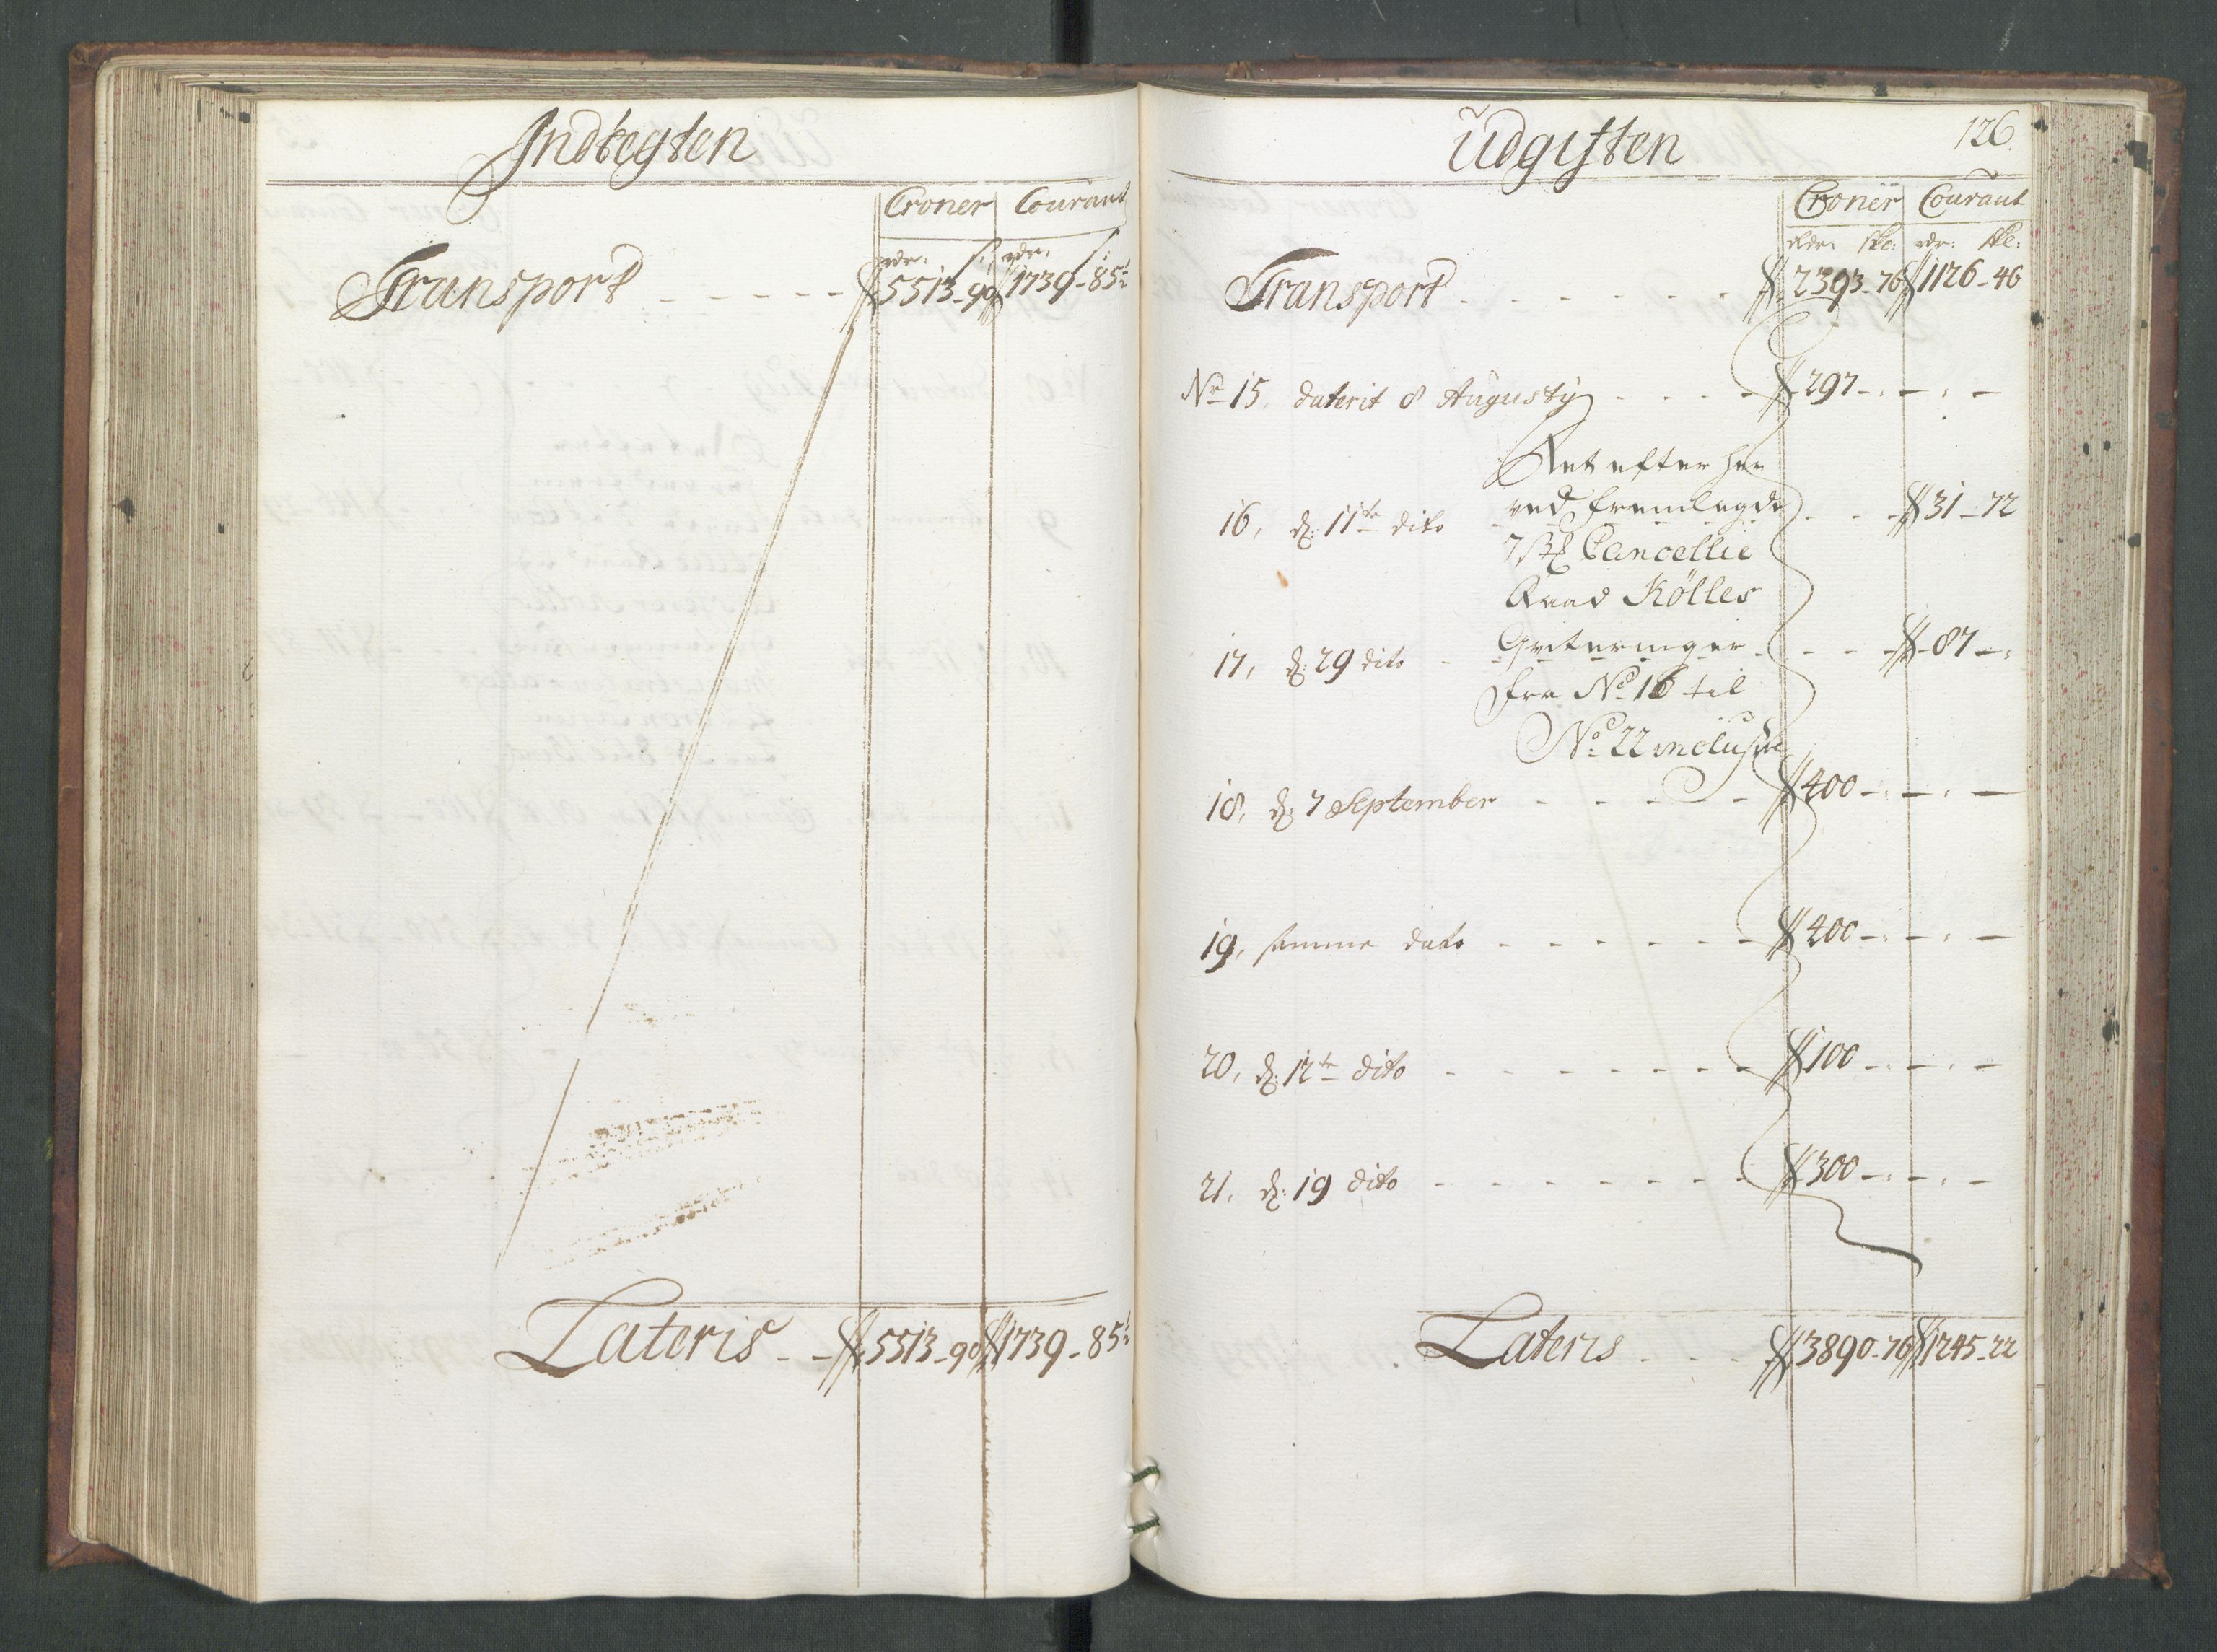 Indtegten
Croner Courant
rdr: s: rdr: s:
Transport - - - - - 5513-90 1739-85½
Lateris - - 5513-90 1739-85½
Udgiften
126
Croner Courant
rdr: ske: rdr: ske:
Transport - - - - - - 2393-76 1126-46
No 15, daterit 8 Augusty - - - - 297 - : - : -
Ret efter her
16, d: 11te dito ved fremlegde - - - 31-72
7 st Cancellie
Raad Kölles
17, d: 29 dito - Qviteringer - - - - 87 - :
fra No 16 til
No 22 inclusive
18, d: 7 September - - - - - 400 - : - : -
19, samme dato - - - - - - 400 - : - : -
20, d: 12te dito - - - - - - - 100 - : - : -
21, d: 19 dito - - - - - - - 300 - : - : -
Lateris - - - 3890-76 1245-22